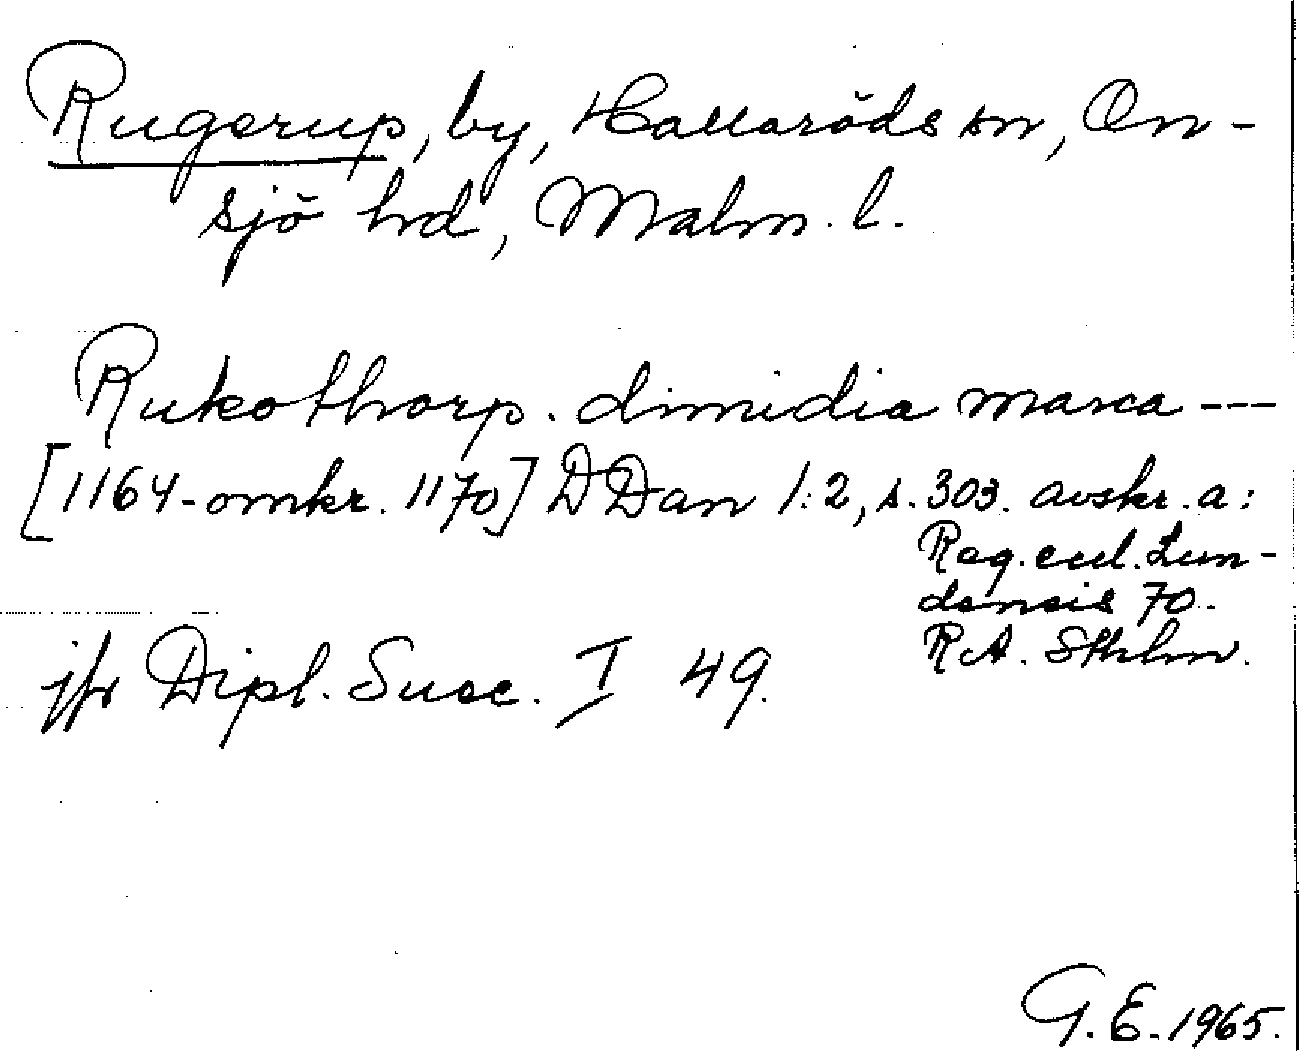 Rugerup, by, Hallaröds sn, On-
sjö hrd, Malm. l.
Rukothorp. dimidia marca ---
[1164-omkr. 1170] DDan 1:2, s. 303. avskr. a:
Reg. eccl. Lun-
densis 70.
RA. Sthlm.
jfr Dipl. Suec. I 49.
G. E. 1965.